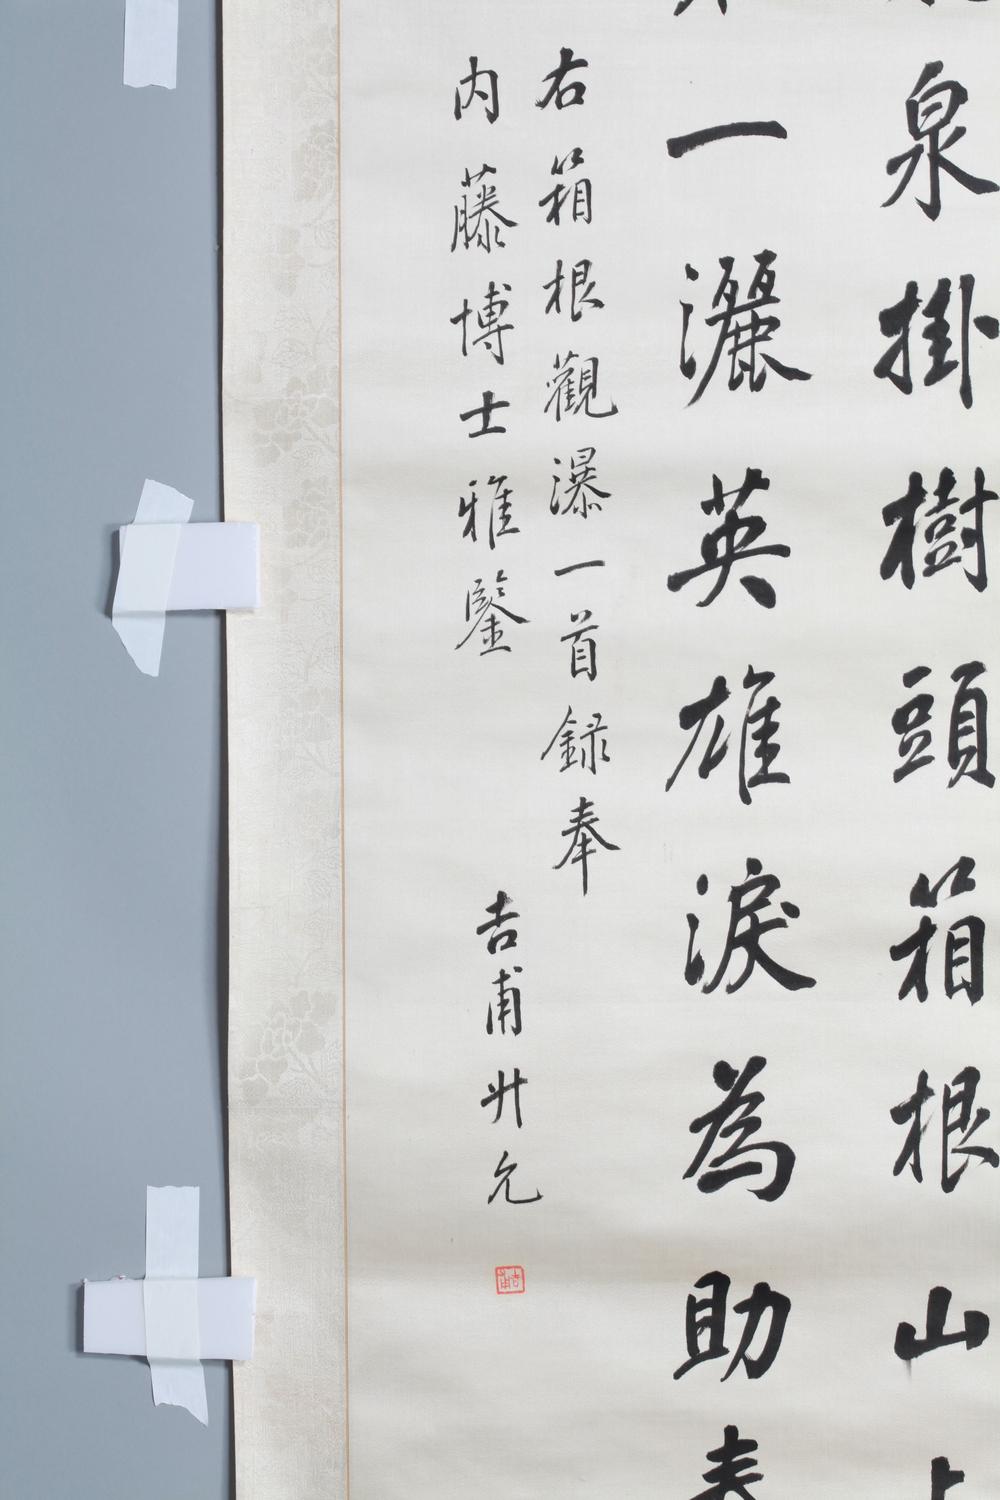 泉掛樹頭箱根山上
一灑英雄淚為助
右箱根觀瀑一首錄奉
内藤博士雅鑒
吉甫升允
吉甫